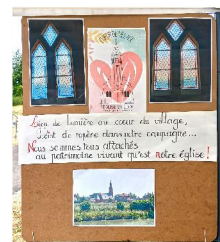 Lieu de lumière au cœur du village,
Point de repère dans notre campagne...
Nous sommes tous attachés
au patrimoine vivant qu'est notre église !